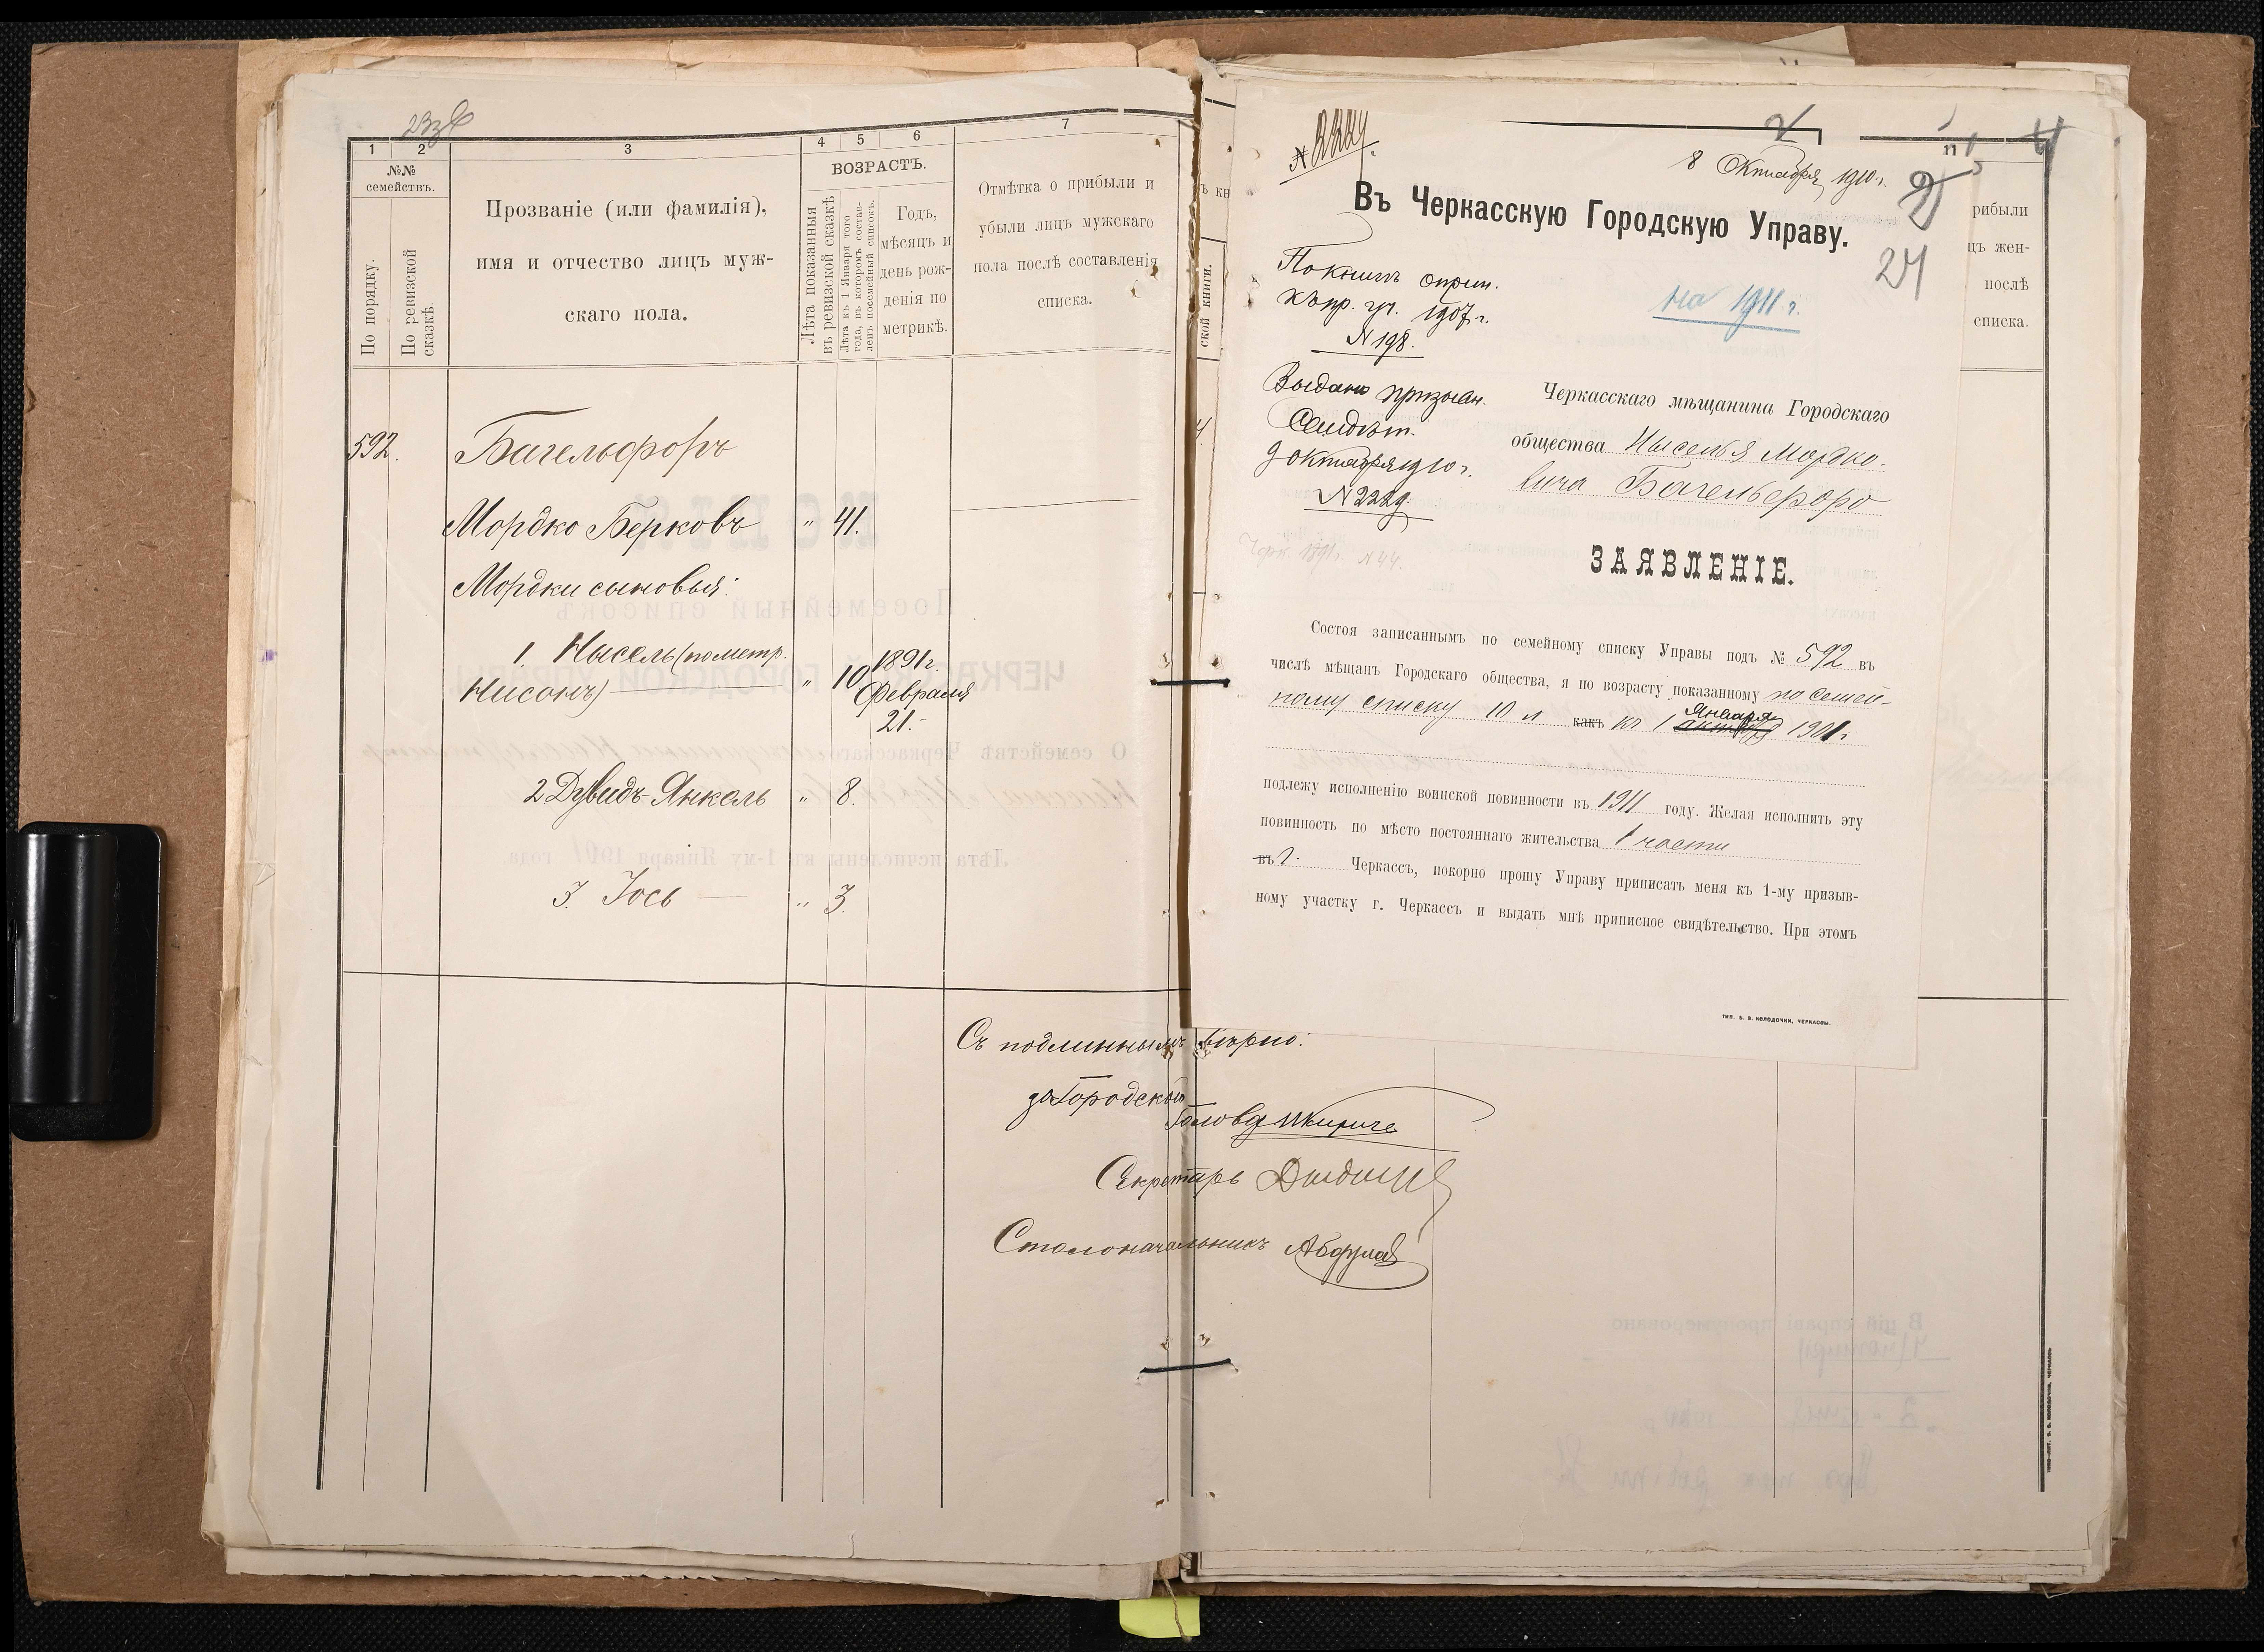 23 об
1 2 3 4 5 6 7
№№ семействъ.
По порядку.
По ревизской сказкѣ.
Прозваніе (или фамилія),
имя и отчество лицъ муж-
скаго пола.
ВОЗРАСТЪ.
Лѣта показанныя въ ревизской сказкѣ
Лѣта къ 1 Января того года, въ которомъ состав-ленъ посемейный списокъ.
Годъ,
мѣсяцъ и
день рож-
денія по
метрикѣ.
Отмѣтка о прибыли и
убыли лицъ мужскаго
пола послѣ составленія
списка.
592. Багельфоръ
Мордко Берковъ " 41.
Мордки сыновья:
1. Нысель (по метр.
Нисонъ) " 10 1891 г.
Февраля
21.
2 Дувидъ-Янкель " 8.
3. Іось " 3.
Съ подлиннымъ вѣрно:
за Городской
Голова
Секретарь
Столоначальникъ
11
24
рибыли
цъ жен-
послѣ
списка.
ской книги.
№ 2229
8 Октября 1910 г.
Въ Черкасскую Городскую Управу.
на 1911 г.
къ пр. уч. 1907 г.
№ 198.
Выдано призывн.
Свидѣт.
9 октября 1910 г.
№ 2229.
Черкасскаго мѣщанина Городскаго
общества Ныселя Мордко-
вича Багельфоро
ЗАЯВЛЕНІЕ.
Состоя записаннымъ по семейному списку Управы подъ № 592 въ
числѣ мѣщанъ Городскаго общества, я по возрасту показанному по семей-
ному списку 10 л какъ къ 1 Января 1901 г
подлежу исполненію воинской повинности въ 1911 году. Желая исполнить эту
повинность по мѣсто постояннаго жительства 1 части
въ г. Черкассъ, покорно прошу Управу приписать меня къ 1-му призыв-
ному участку г. Черкассъ и выдать мнѣ приписное свидѣтельство. При этомъ
ТИП. Б. В. КОЛОДОЧКИ, ЧЕРКАССЫ.